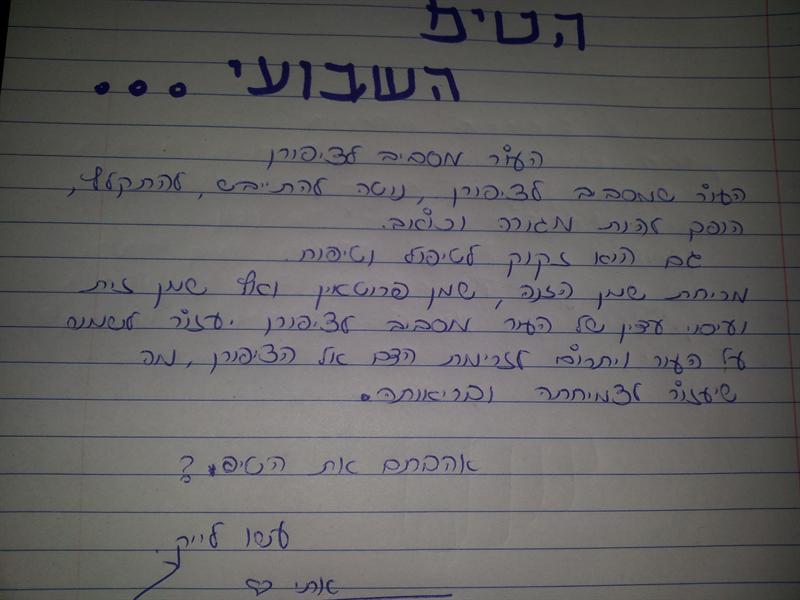 הטיפ
השבועי ...
העור מסביב לציפורן
העור שמסביב לציפורן, נוטה להתייבש, להתקלף,
הופך להיות מגורה וכואב.
גם הוא זקוק לטיפול וטיפוח.
מריחת שמן הזנה, שמן פרוטאין ואף שמן זית
ועיסוי עדין של העור מסביב לציפורן יעזור לשמור
על העור ויתרום לזרימת הדם אל הציפורן, מה
שיעזור לצמיחתה ובריאותה.
אהבתם את הטיפ.?
עשו לייק.
אתי ♡